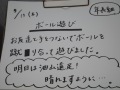 9/11(木)
年長組
ボール遊び
お友達と手をつないでボールを
蹴り合って遊びました。
明日は油山遠足!
晴れますように…